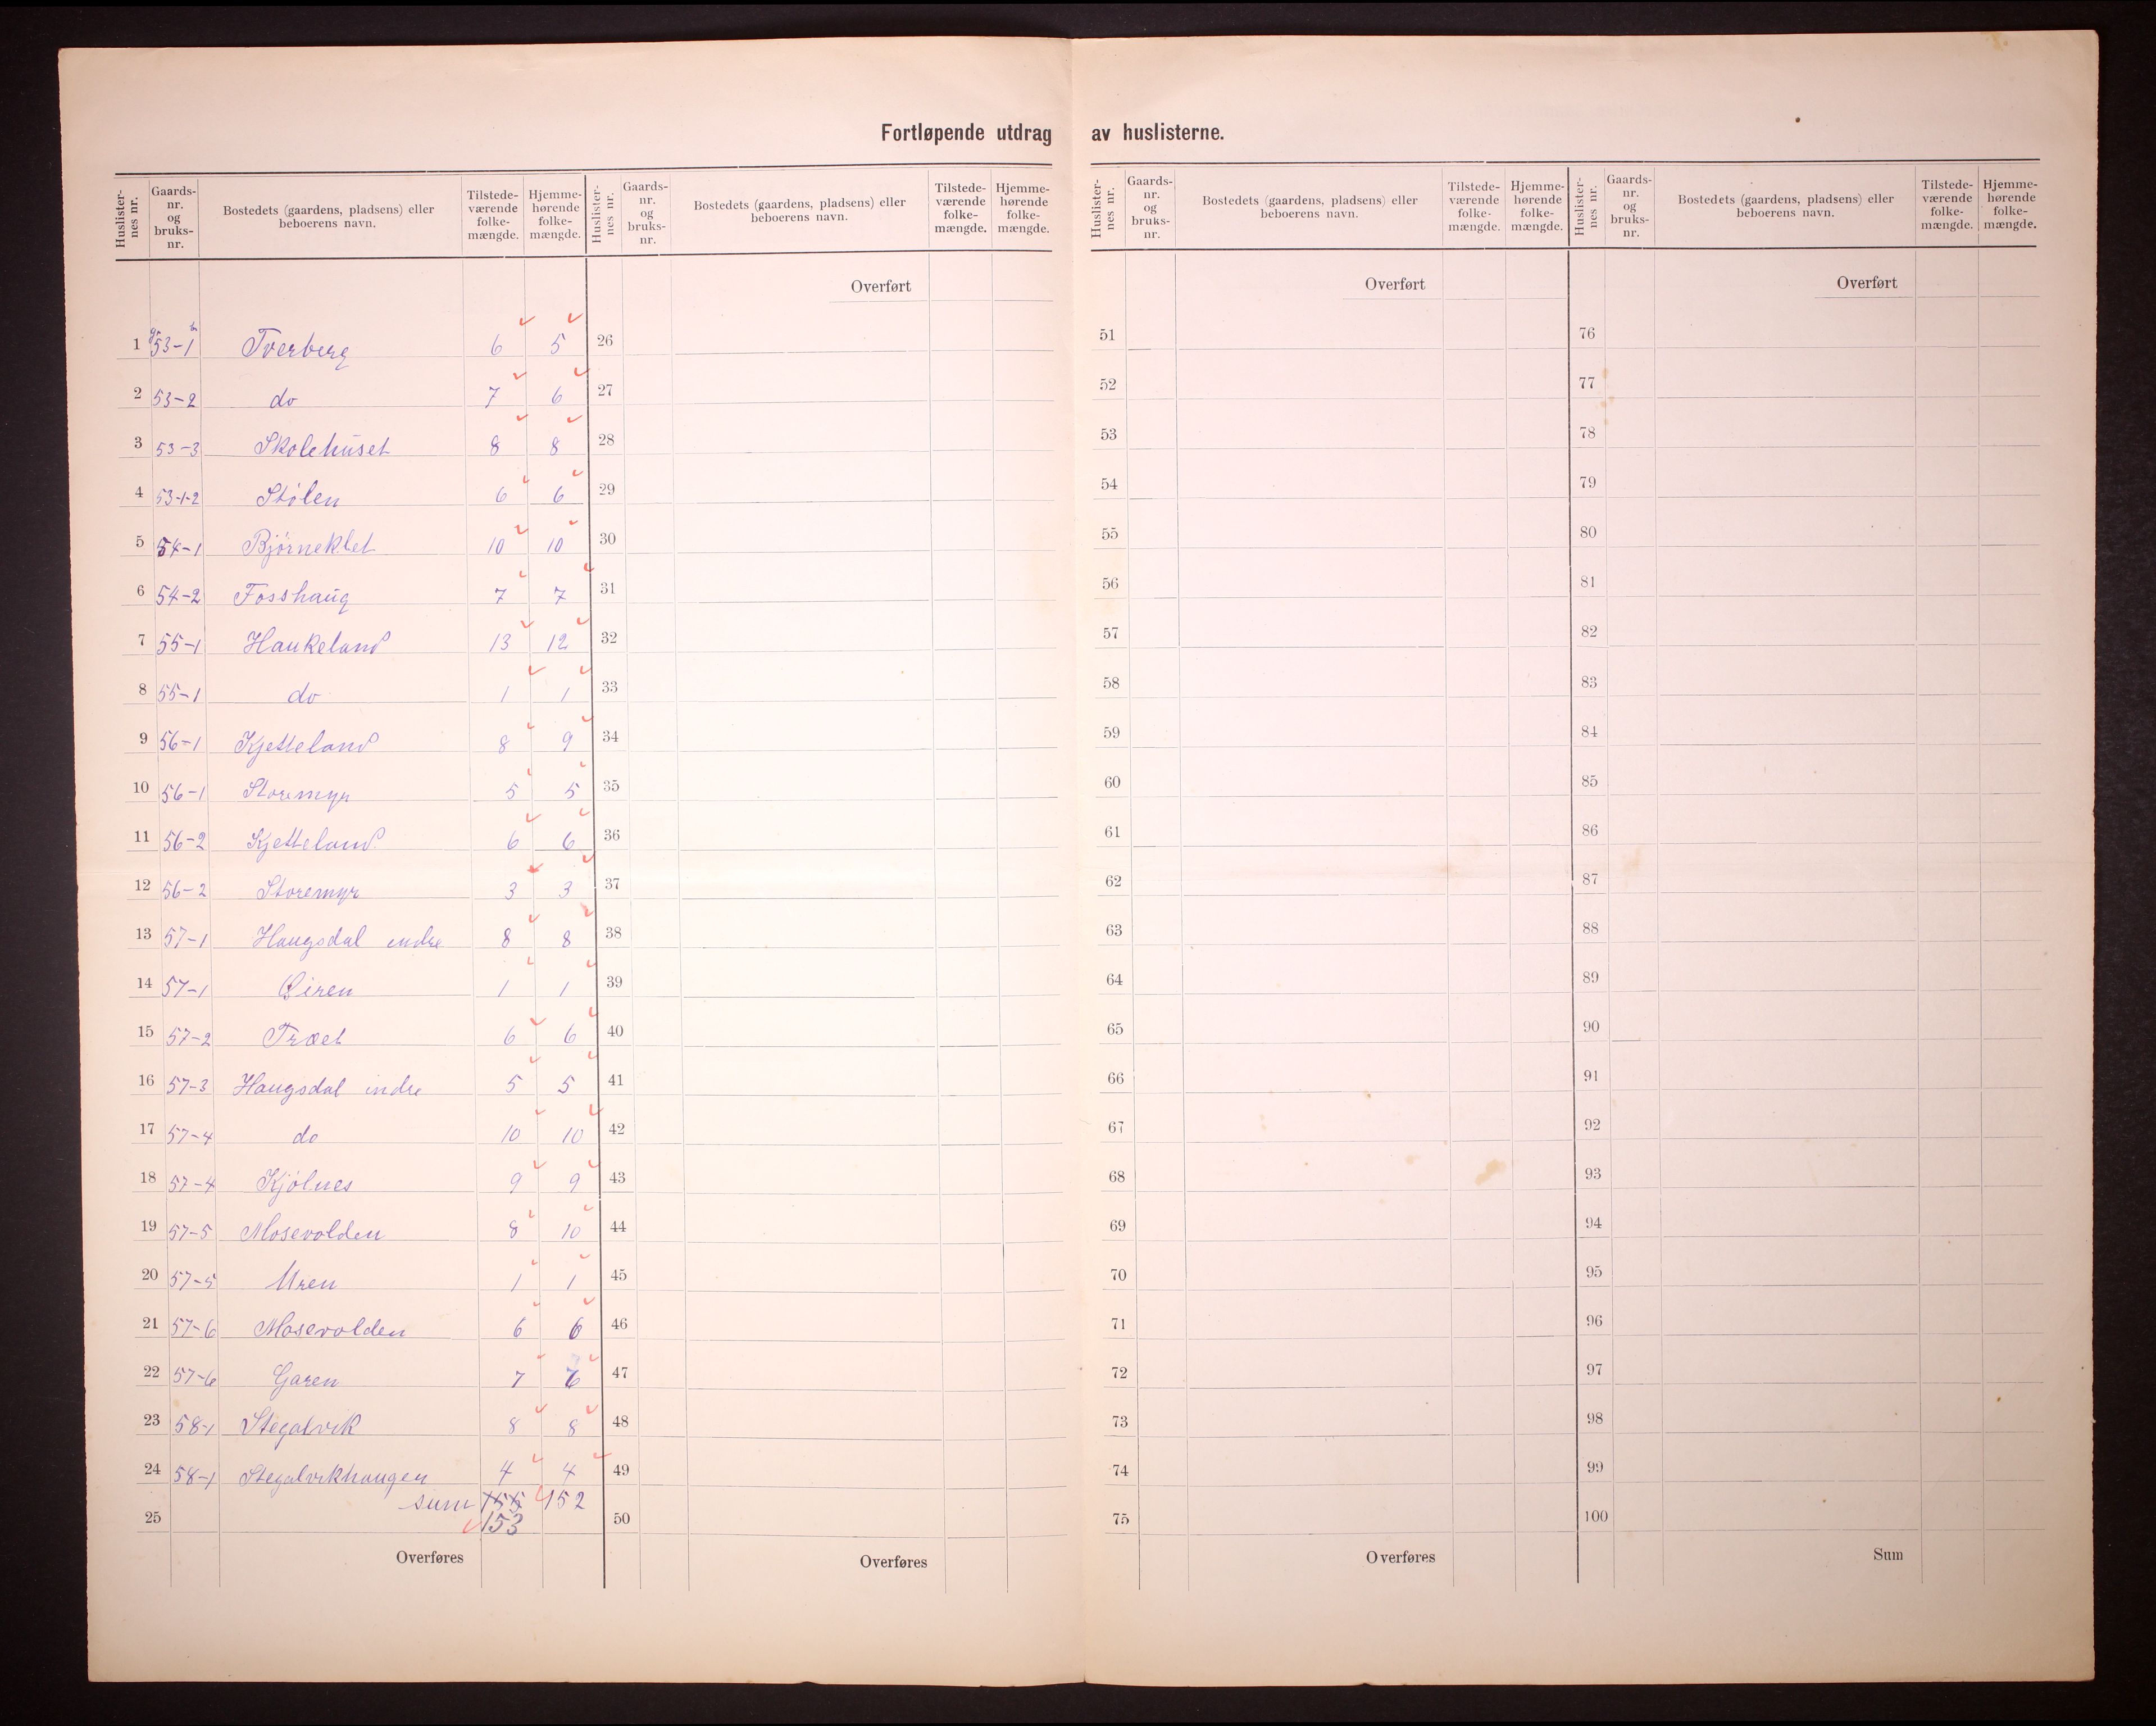 Fortløpende utdrag av huslisterne.
Huslisternes nr. | Gaards-nr. og bruks-nr. | Bostedets (gaardens, pladsens) eller beboerens navn. | Tilstede-værende folke-mængde. | Hjemme-hørende folke-mængde.
1 53-1 Tverberg 6 5
2 53-2 do 7 6
3 53-3 Skolehuset 8 8
4 53-1-2 Stølen 6 6
5 54-1 Bjørneklet 10 10
6 54-2 Fosshaug 7 7
7 55-1 Haukeland 13 12
8 55-1 do 1 1
9 56-1 Kjetteland 8 9
10 56-1 Storemyr 5 5
11 56-2 Kjetteland 6 6
12 56-2 Storemyr 3 3
13 57-1 Haugsdal indre 8 8
14 57-1 Øiren 1 1
15 57-2 Træet 6 6
16 57-3 Haugsdal indre 5 5
17 57-4 do 10 10
18 57-4 Kjølnes 9 9
19 57-5 Mosevolden 8 10
20 57-5 Uren 1 1
21 57-6 Mosevolden 6 6
22 57-6 Garen 7 6
23 58-1 Stegalvik 8 8
24 58-1 Stegalvikhaugen 4 4
sum 155 152
25 153
Overføres
Huslisternes nr. | Gaards-nr. og bruks-nr. | Bostedets (gaardens, pladsens) eller beboerens navn. | Tilstede-værende folke-mængde. | Hjemme-hørende folke-mængde.
Overført
26
27
28
29
30
31
32
33
34
35
36
37
38
39
40
41
42
43
44
45
46
47
48
49
50
Overføres
Huslisternes nr. | Gaards-nr. og bruks-nr. | Bostedets (gaardens, pladsens) eller beboerens navn. | Tilstede-værende folke-mængde. | Hjemme-hørende folke-mængde.
Overført
51
52
53
54
55
56
57
58
59
60
61
62
63
64
65
66
67
68
69
70
71
72
73
74
75
Overføres
Huslisternes nr. | Gaards-nr. og bruks-nr. | Bostedets (gaardens, pladsens) eller beboerens navn. | Tilstede-værende folke-mængde. | Hjemme-hørende folke-mængde.
Overført
76
77
78
79
80
81
82
83
84
85
86
87
88
89
90
91
92
93
94
95
96
97
98
99
100
Sum